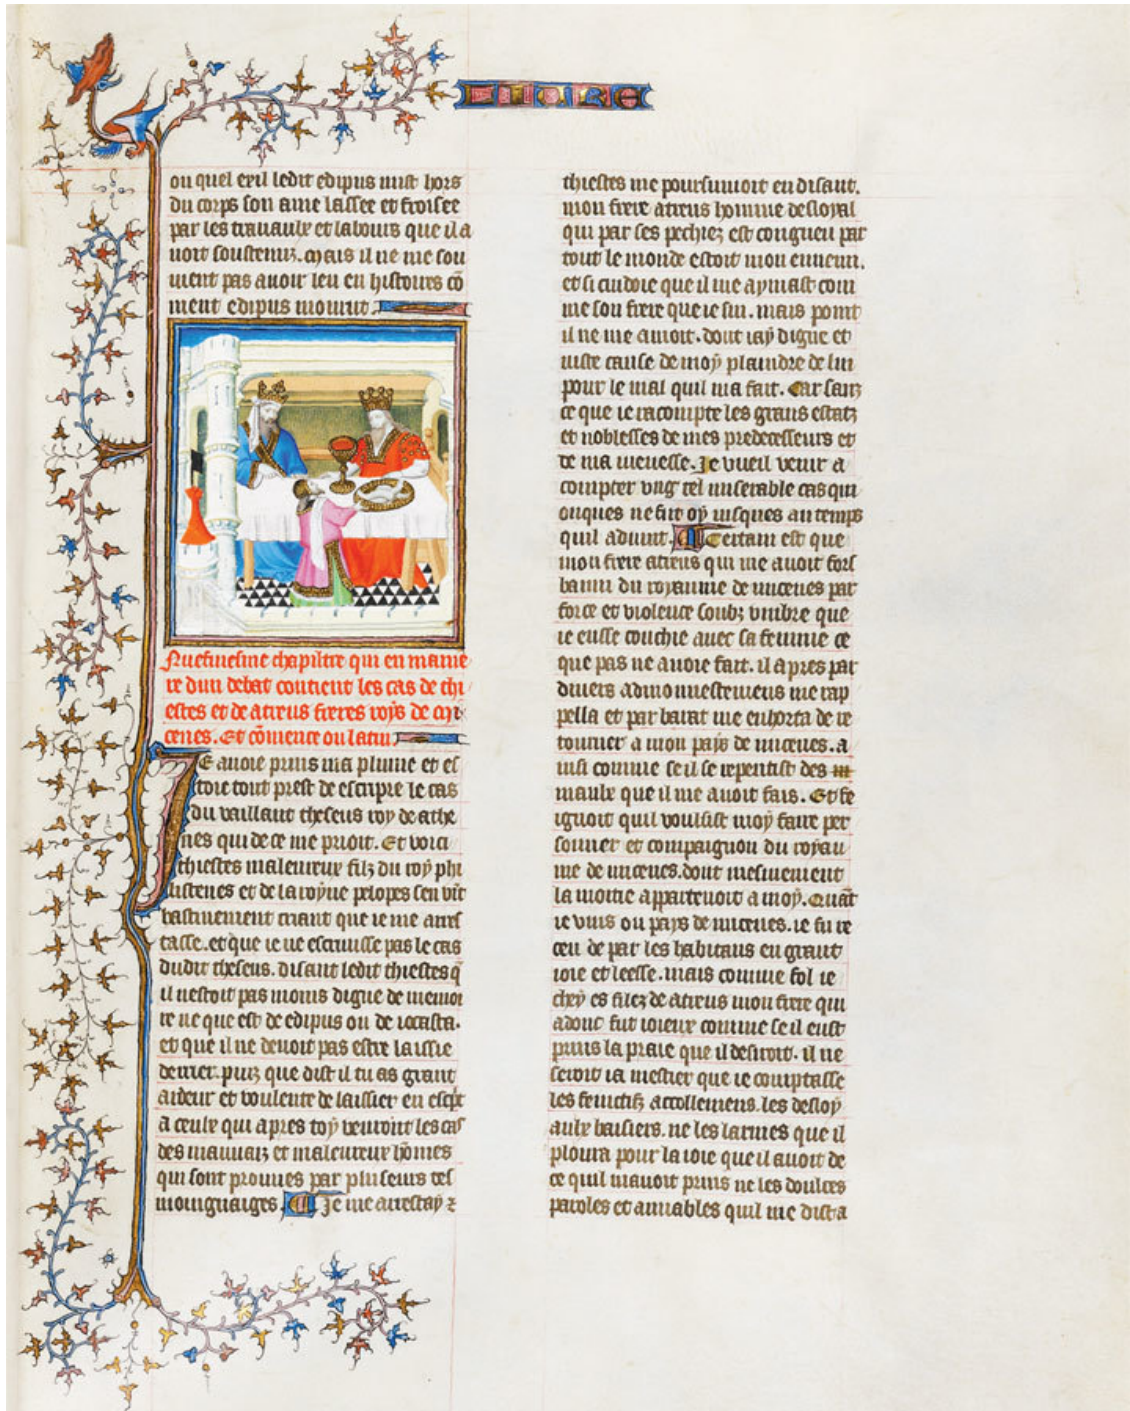 LIURE
ou quel exil ledit edipus mist hors
du corps son ame lassee et froisee
par les trauaulx et labours que il a
uoit soustenus. Mais il ne me sou
uient pas auoir leu en histoires cō
ment edipus mourut
Nuefuiesme chapiltre qui en manie
re dun debat contient les cas de thi
estes et de atreus freres roys de mi
cenes. Et cōmence ou latin
Je auoie prins ma plume et es
toie tout prest de escripre le cas
du vaillant theseus roy de athe
nes qui de ce me prioit. Et voici
thiestes maleureux filz du roy phi
listenes et de la royne pelopes sen vīt
hastiuement criant que ie me arres
tasse. et que ie ne escriuisse pas le cas
dudit theseus. disant ledit thiestes q̄
il nestoit pas moins digne de memoi
re ne que est de edipus ou de iocasta.
et que il ne deuoit pas estre laissie
derrier. puiz que dist il tu as grant
ardeur et voulente de laissier en escpt
a ceulx qui apres toy venront les cas
des mauuaiz et maleureux hōmes
qui sont prouues par pluseurs tes
moingnaiges. Je me arrestay ⁊
thiestes me poursuiuoit en disant.
mon frere atreus homme desloyal
qui par ses pechiez est congneu par
tout le monde estoit mon ennemi.
et si cuidoie que il me aymast com
me son frere que ie sui. mais point
il ne me amoit. dont iay digne et
iuste cause de moy plaindre de lui
pour le mal quil ma fait. Car sanz
ce que ie racompte les grans estatz
et noblesses de mes predecesseurs et
de ma ieunesse. Je vueil venir a
compter vng tel miserable cas qui
onques ne fut oy iusques au temps
quil aduint. Certain est que
mon frere atreus qui me auoit fors
banni du royaume de micenes par
force et violence soubz vmbre que
ie eusse couchie auec sa femme ce
que pas ne auoie fait. il apres par
diuers admonnestemens me rap
pella et par barat me enhorta de re
tourner a mon pays de micenes. a
insi comme se il se repentist des m
maulx que il me auoit fais. Et fe
ignoit quil voulsist moy faire per
sonnier et compaignon du royau
me de micenes. dont mesmement
la moitie appartenoit a moy. Quāt
ie vins ou pays de micenes. ie fu re
ceu de par les habitans en grant
ioie et leesse. mais comme fol ie
chey es filez de atreus mon frere qui
adonc fut ioieux comme se il eust
prins la praie que il desiroit. il ne
seroit ia mestier que ie comptasse
les feinctifz accollemens. les desloy
aulx baisiers. ne les larmes que il
ploura pour la ioie que il auoit de
ce quil mauoit prins ne les doulces
paroles et amiables quil me dist a